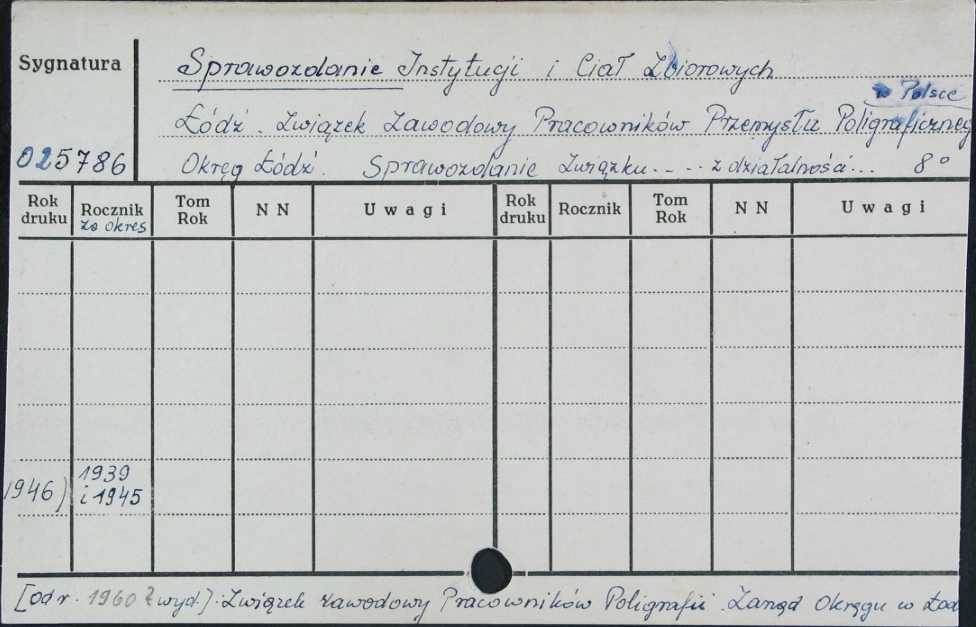 Sygnatura
Sprawozdanie Instytucji i Ciał Zbiorowych
w Polsce
Łódź. Związek Zawodowy Pracowników Przemysłu Poligraficzneg
025786
Okręg Łódź. Sprawozdanie Związku..... z działalności... 8°
Rok druku Rocznik za okres Tom Rok N N Uwagi Rok druku Rocznik Tom Rok N N Uwagi
1939
1946) i 1945
[od r. 1960 zwyd.]. Związek zawodowy Pracowników Poligrafii. Zarząd Okręgu w Łod